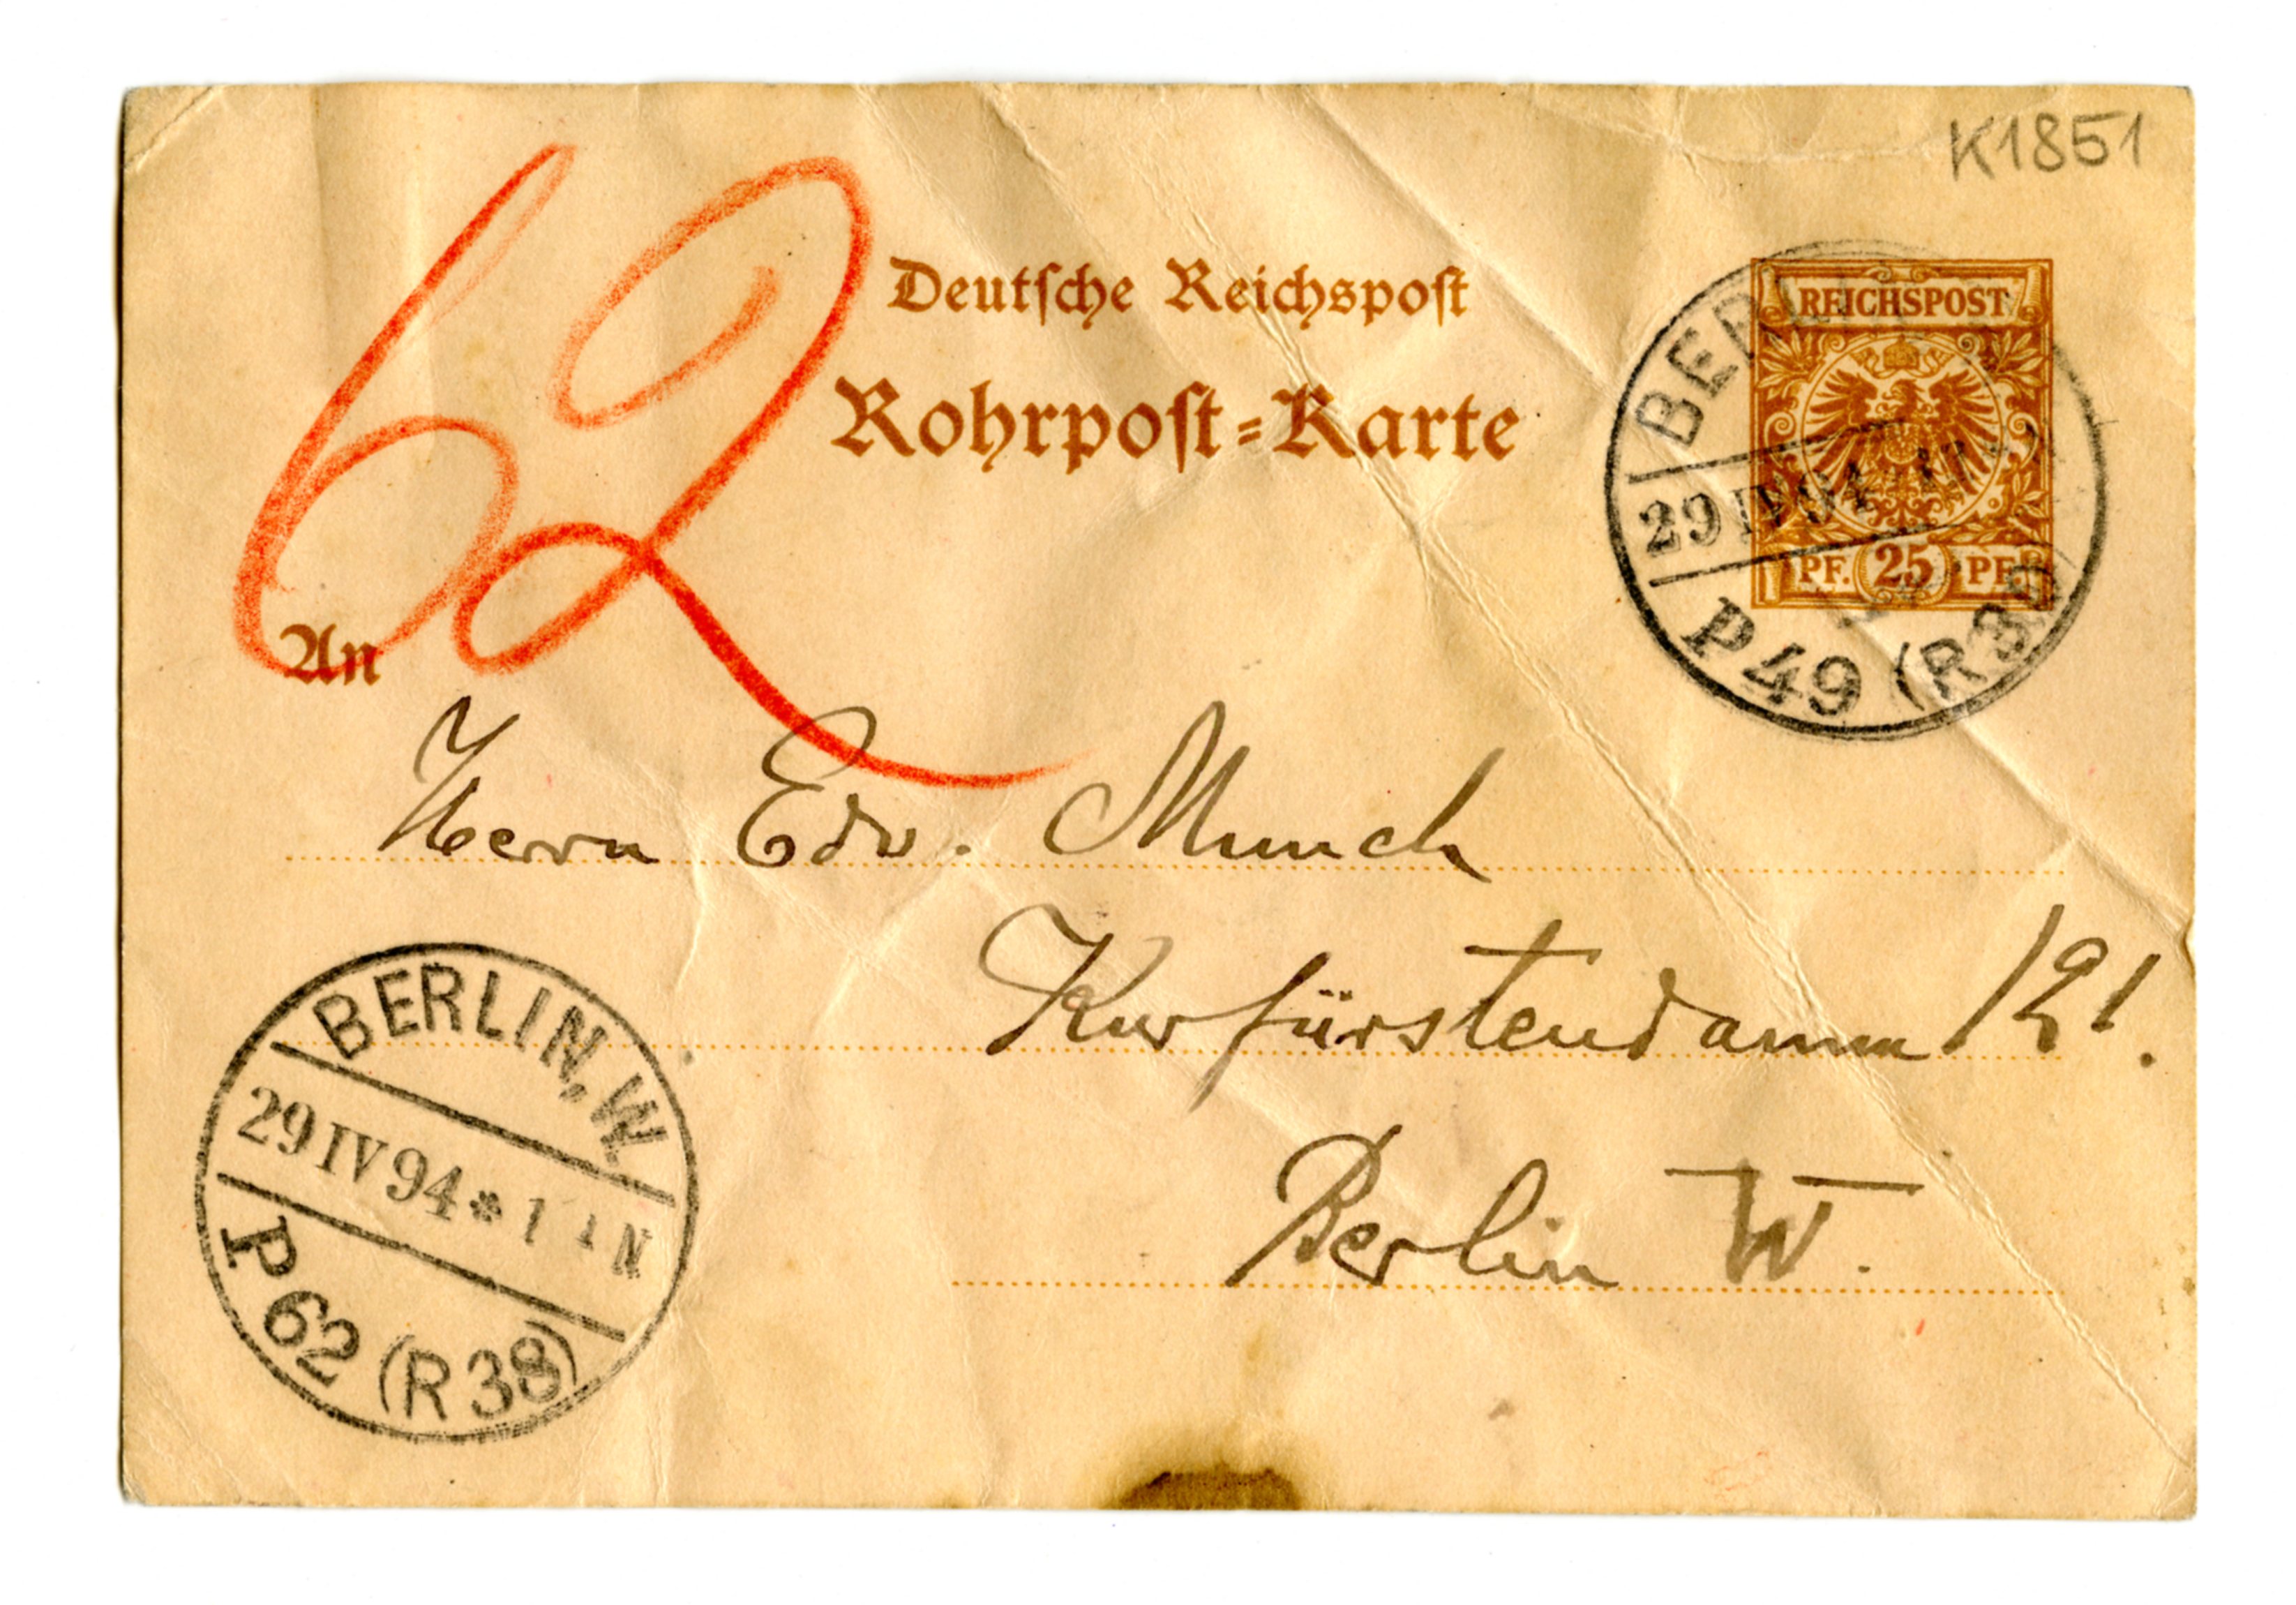 K1851
62
Deutsche Reichspost
Rohrpost-Karte
REICHSPOST
PF. 25 PF.
BERLIN
29 IV 94
P 49 (R 30)
An
Herrn Edv. Munch
Kurfürstendamm 121.
Berlin W.
BERLIN, W.
29 IV 94 * 1 N
P 62 (R 38)